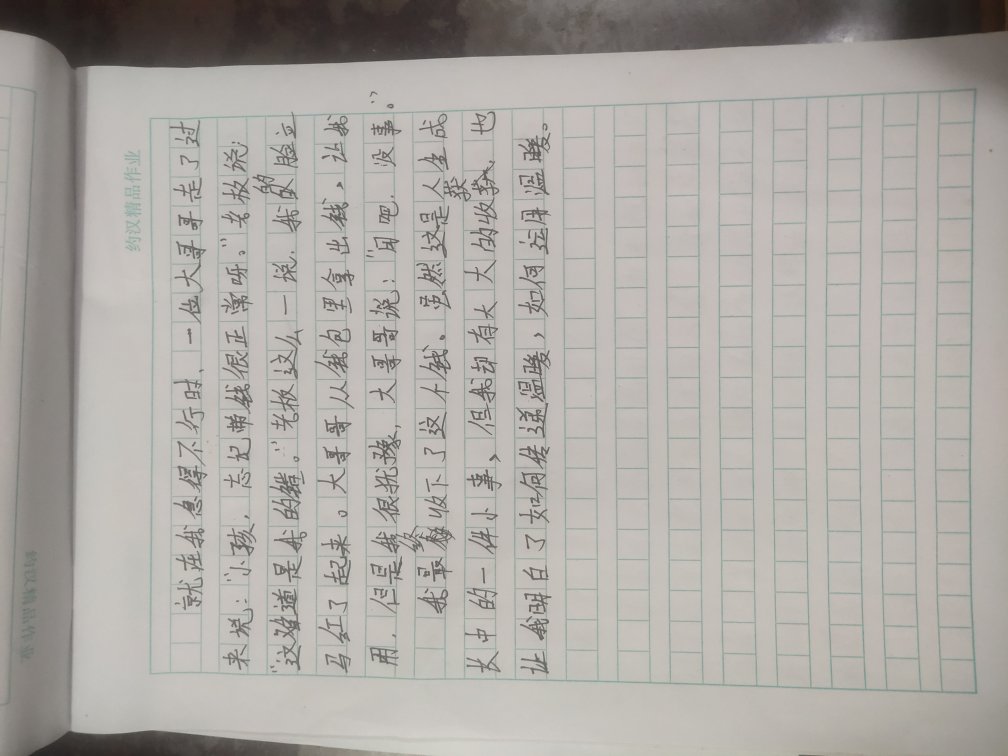 约汉精品作业
就在我急得不行时、一位大哥哥走了过
来说：“小孩，忘记带钱很正常呀。”老板说：
“这难道是我的错。”老板这么一说，我的脸立
马红了起来。大哥哥从钱包里拿出钱，让我
用，但是我很犹豫，大哥哥说：“用吧，没事。”
我最终收下了这个钱。虽然这是人生成
长中的一件小事、但我却有大大的收获，也
让我明白了如何传递温暖，如何运用温暖。